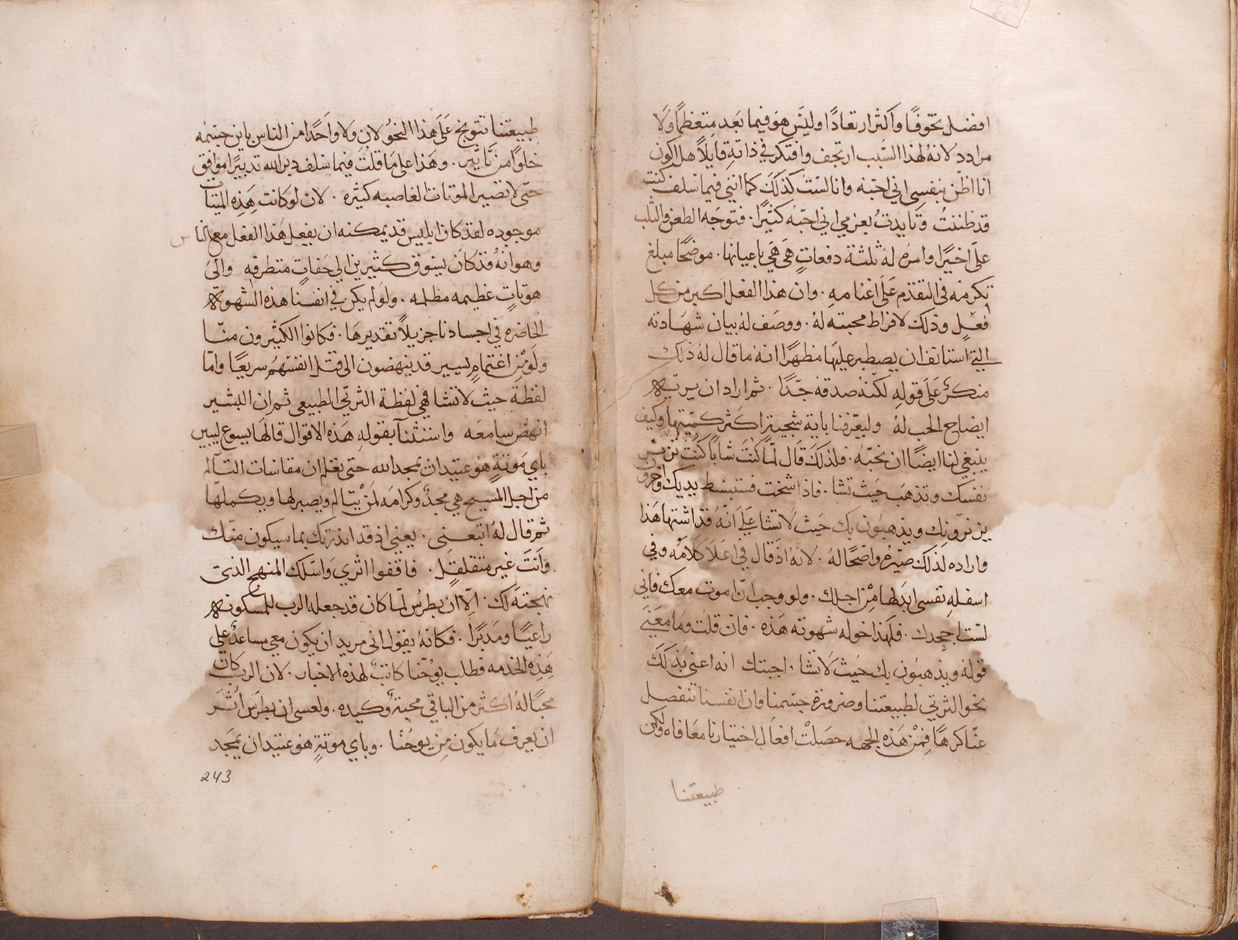 افضل تخوفًا واكثر ارتعادًا وليس هو فيما بعد متعظمًا ولا
مرادد لانه لهذا السبب ارتجف وافتكر في ذاته قايلاً هل اكون
انا اظن بنفسي اني احبه وانا لست كذلك كما انني فيما سلف كنت
قد ظننت وتايدت بعزمي اني احبه كثيرًا. فتوجه الطعن والثلب
علي اخيرًا وامره له ثلثة دفعات هي هي باعيانها. موضحًا مبلغ
تكرمه في التقدم على اغنامه. وان هذا الفعل اكبر من كل
فعل وذلك لافراط محبته له. ووصف له بيان شهادته
التي استانف ان يصطبر عليها مظهرًا انه ما قال له ذلك
منكر على قوله لكنه صدقه جدًا. ثم اراد ان يريه
ايضاح الحب له وليعرفنا باية سجية اكثر كميتها وكيف
ينبغي لنا ايضًا ان نحبه. فلذلك قال لما كنت شابًا كنت تزنر
نفسك وتذهب حيث تشا. فاذا شخت فستبسط يديك واخرون
يزنرونك ويذهبون بك حيث لا تشا على انه قد اشتها هذا
واراده لذلك صيره واضحًا له. لانه اذ قال في اعلا كلامه وفي
اسفله نفسي ابذلها من اجلك. ولو وجب ان اموت معك فاني
لست اجحدك. فلهذا خوله شهوته هذه. فان قلت وما معنى
قوله ويذهبون بك حيث لا تشا. اجبتك انه اعني بذلك
نحو الترثي لطبيعتنا وضرورة جسمنا وان انفسنا تنفصل
عنا كرهًا فمن هذه الجهه حصلت افعال اختيارنا معافاه ولكن
طبيعتنا
طبيعتنا تتوبخ على هذا النحو لان ولا واحدًا من الناس باين جسمه
خلوًا من تاثير. وهذا على ما قلت فيما سلف دبره الله تدبيرًا موافق
حتى لا تصير الموتات الغاصبه كثيره. لان لو كانت هذه الميتات
موجوده لقد كان ابليس قد يمكنه ان يفعل هذا الفعل مع الناس
وهو انه قد كان يسوق كثيرين الى حفات متطرفه والى
هوتات عظيمه مظلمه. ولو لم يكن في انفسنا هذه الشهوه
الحاضره في اجسادنا جزيلاً تقديرها. فكانوا الكثيرون منا
ولو من اغتمام يسير قد ينهضون الى قتل انفسهم سريعًا واما
لفظة حيث لا تشا فهي لفظة الترثي الطبيعي ثم ان البشير
انهض سامعه واستثنا بقوله هذه الاقوال قالها يسوع ليبين
باي موتة هو عتيد ان يمجد الله حتى تعلم ان مقاسات التالم
من اجل المسيح هي مجد وكرامه لمن يتالم ويصبر لها ويكملها
ثم قال له اتبعني. يعني اذ قد انذرتك بما سيكون منك
وانت غير متقلقل. فاقفوا اثري واسلك المنهج الذي
نهجته لك. الا ان بطرس لما كان قد جعله الرب للمسكونه
راعيًا ومدبرًا. فكانه يقول اني مريد ان يكون معي مساعد على
هذه الخدمه فطلب يوحنا كاتب لهذه الاخبار. لان الرب كان
محبًا له اكثر من الباقي محبة وكيده. ولعسى ان بطرس اثر
ان يعرف ما يكون من يوحنا. وباي موتة هو عتيد ان يمجد
243